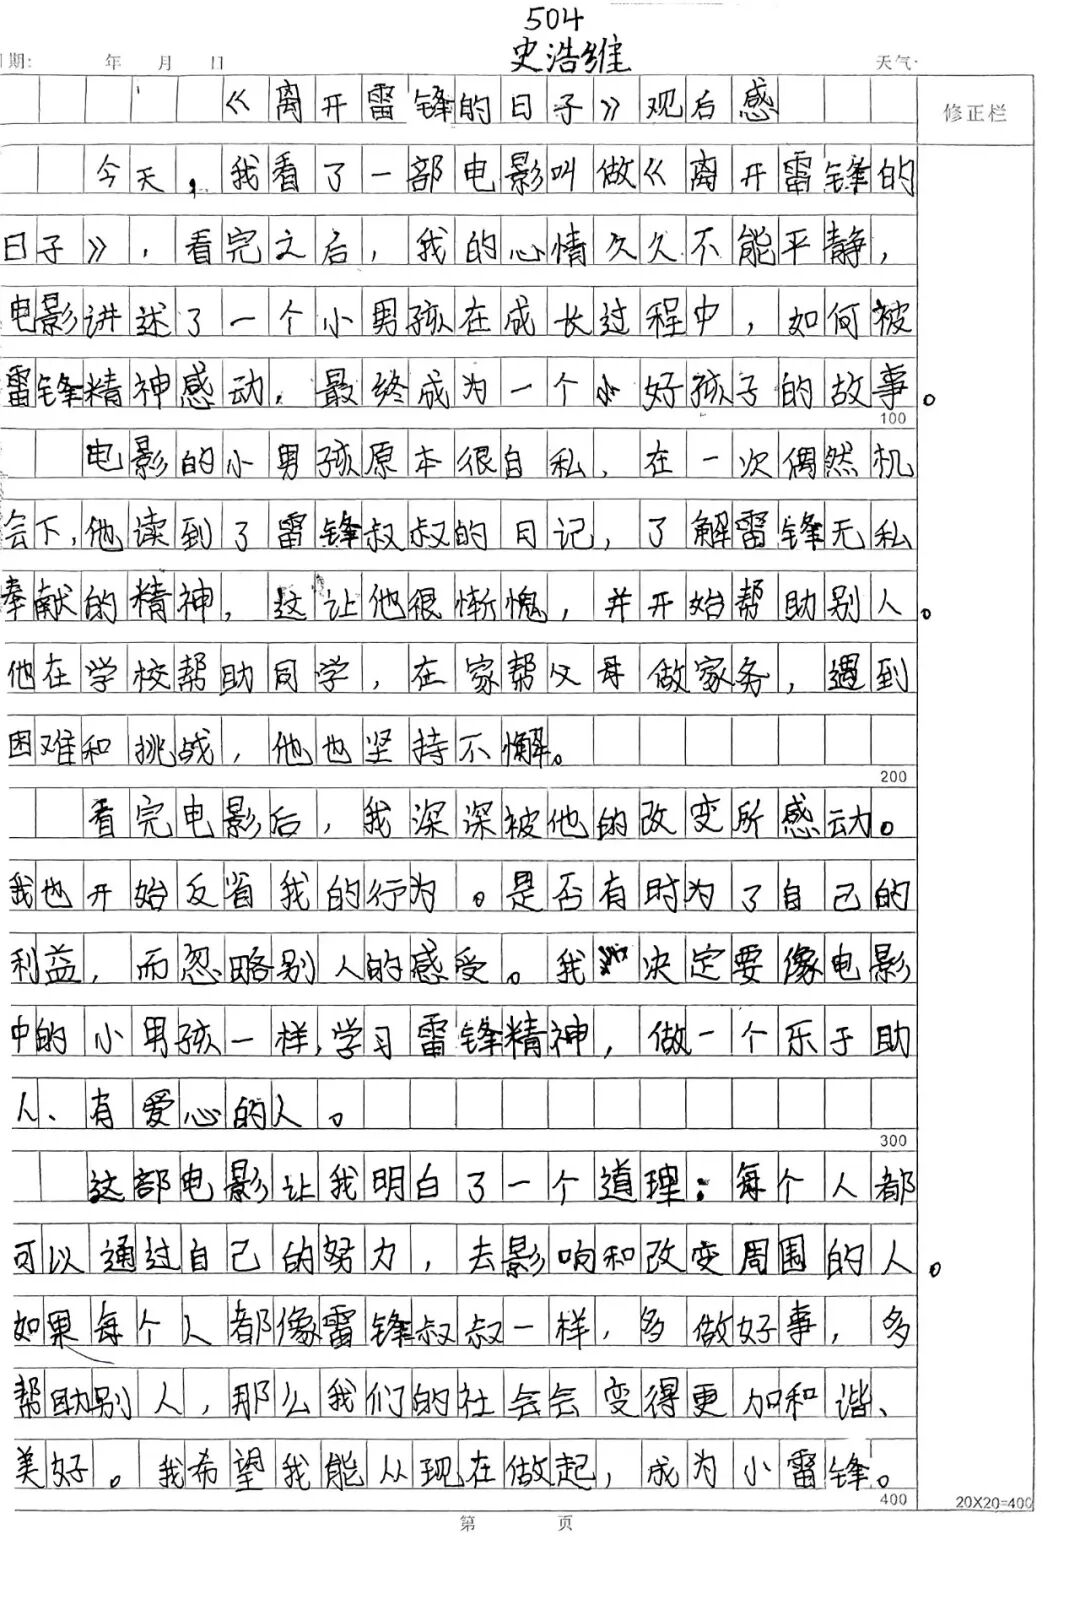 504
史浩维
日期: 年 月 日 天气:
《离开雷锋的日子》观后感
修正栏
今天，我看了一部电影叫做《离开雷锋的
日子》，看完之后，我的心情久久不能平静，
电影讲述了一个小男孩在成长过程中，如何被
雷锋精神感动，最终成为一个小好孩子的故事。
100
电影的小男孩原本很自私，在一次偶然机
会下，他读到了雷锋叔叔的日记，了解雷锋无私
奉献的精神，这让他很惭愧，并开始帮助别人。
他在学校帮助同学，在家帮父母做家务，遇到
困难和挑战，他也坚持不懈。
200
看完电影后，我深深被他的改变所感动。
我也开始反省我的行为。是否有时为了自己的
利益，而忽略别人的感受。我决定要像电影
中的小男孩一样，学习雷锋精神，做一个乐于助
人、有爱心的人。
300
这部电影让我明白了一个道理：每个人都
可以通过自己的努力，去影响和改变周围的人。
如果每个人都像雷锋叔叔一样，多做好事，多
帮助别人，那么我们的社会会变得更加和谐、
美好。我希望我能从现在做起，成为小雷锋。
400
20X20=400
第 页